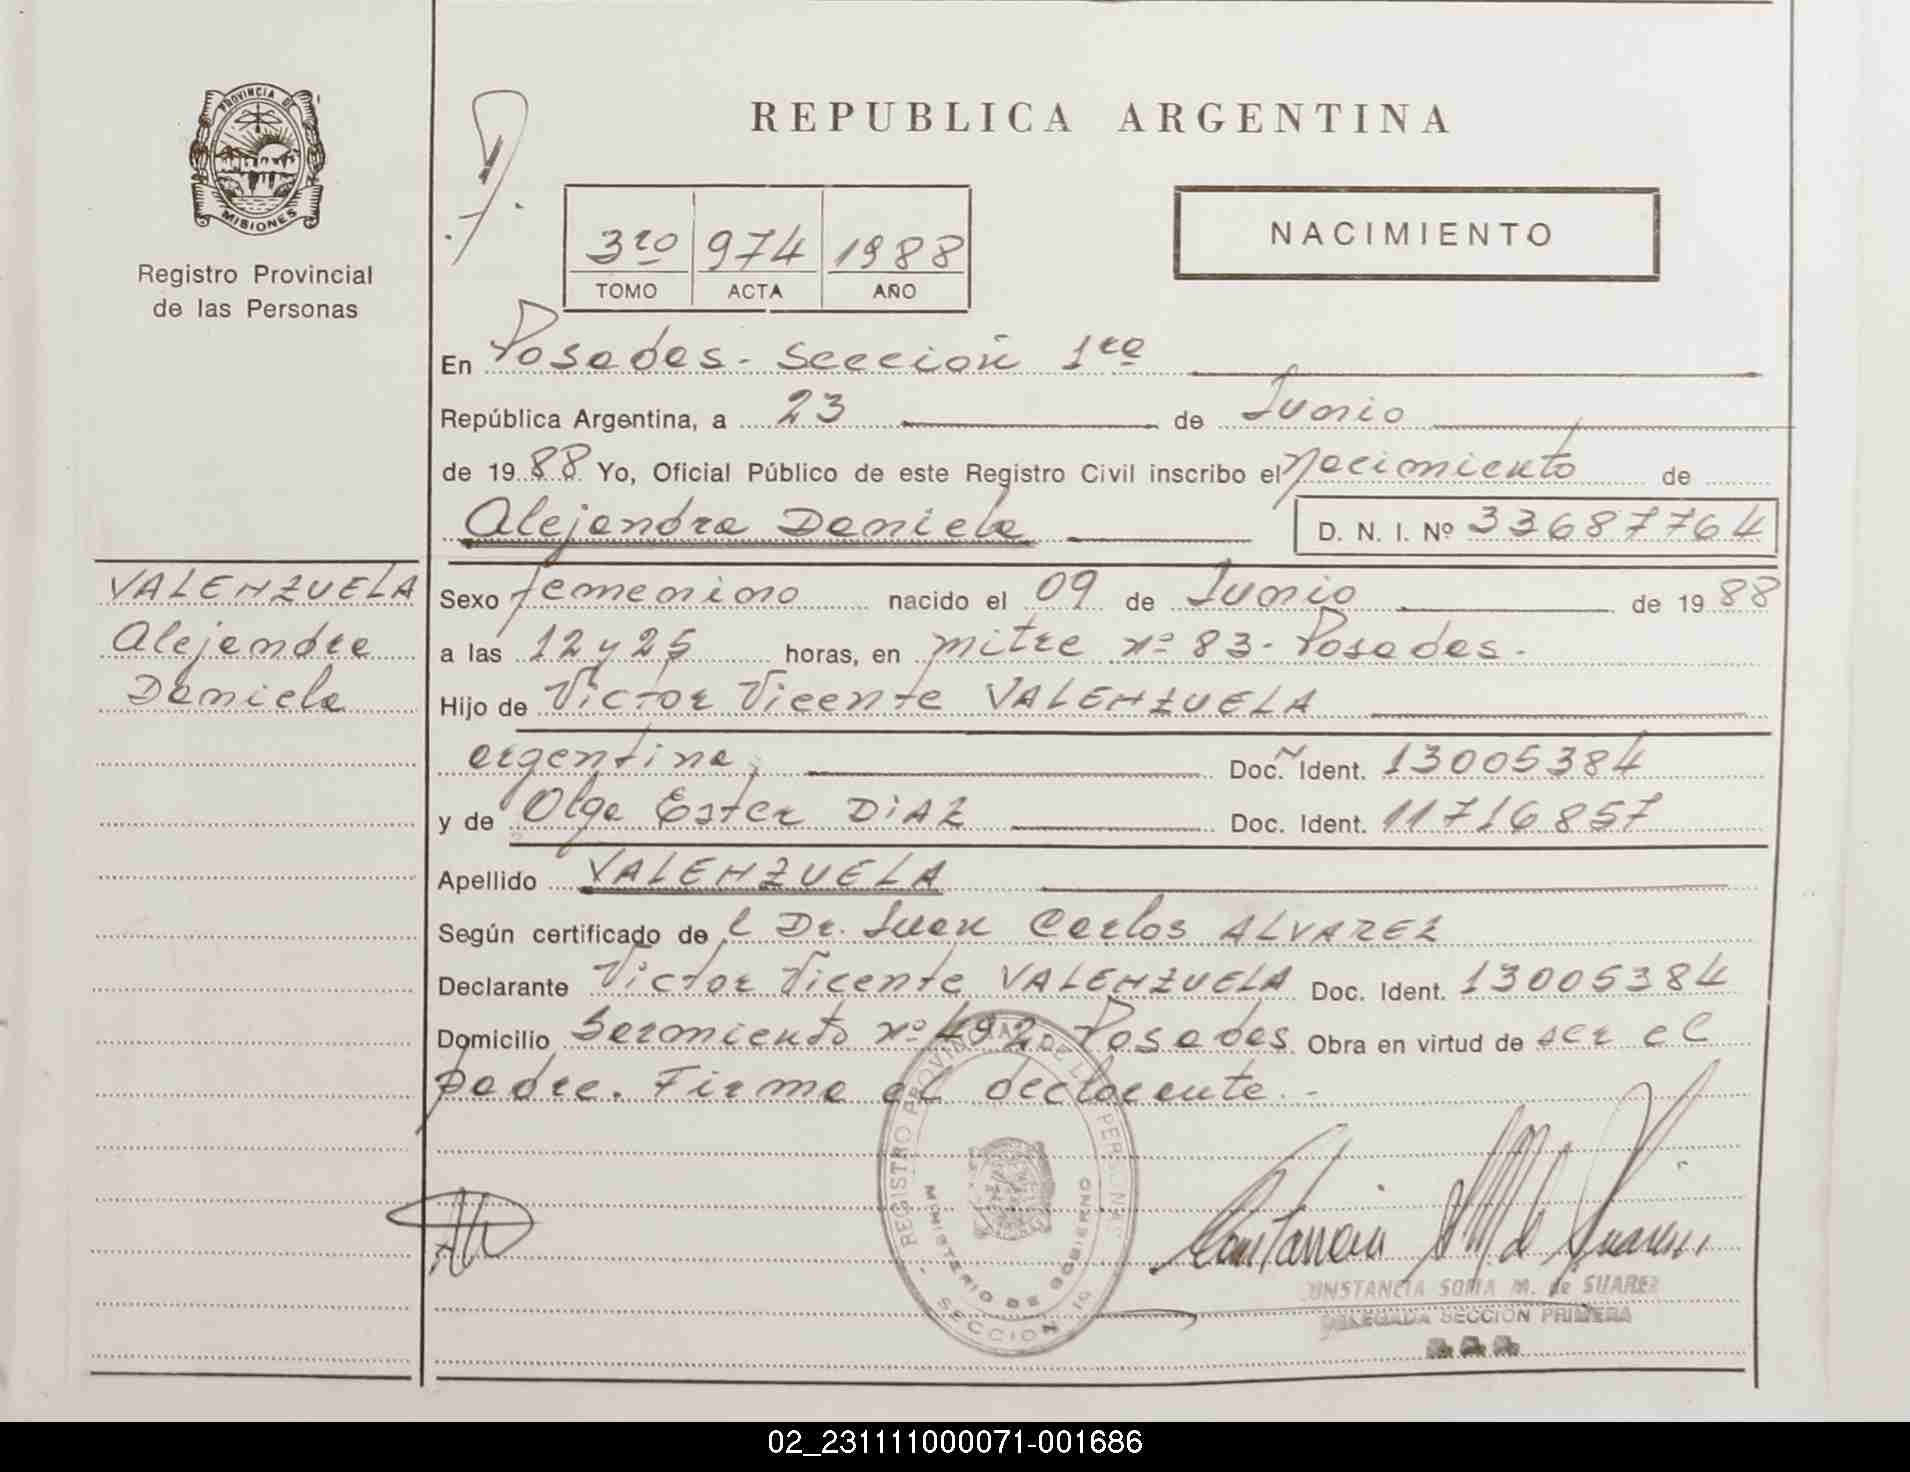 PROVINCIA DE
MISIONES
Registro Provincial
de las Personas
REPUBLICA ARGENTINA
3ro 974 1988
TOMO ACTA AÑO
NACIMIENTO
En Posadas - Sección 1ra
República Argentina, a 23 de Junio
de 1988 Yo, Oficial Público de este Registro Civil inscribo el nacimiento de
Alejandra Daniela D. N. I. Nº 33687764
VALENZUELA
Alejandra
Daniela
Sexo femenino nacido el 09 de Junio de 1988
a las 12 y 25 horas, en mitre nº 83 - Posadas.
Hijo de Victor Vicente VALENZUELA
argentina, Doc. Ident. 13005384
y de Olga Ester DIAZ Doc. Ident. 11716857
Apellido VALENZUELA
Según certificado de l Dr. Juan Carlos ALVAREZ
Declarante Victor Vicente VALENZUELA Doc. Ident. 13005384
Domicilio Sarmiento nº 492. Posadas Obra en virtud de ser el
padre. Firma el declarante. -
REGISTRO PROVINCIAL DE LAS PERSONAS
MINISTERIO DE GOBIERNO
SECCION 1a
CONSTANCIA SOFIA M. de SUAREZ
DELEGADA SECCION PRIMERA
02_231111000071-001686